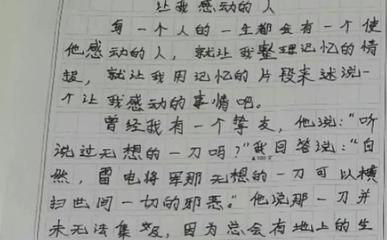 让我感动的人
每一个人的一生都会有一个使
他感动的人，就让我整理记忆的情
提，就让我用记忆的片段来述说一
个让我感动的事情吧。
曾经我有一个挚友，他说："听
说过无想的一刀吗？"我回答说："自
然，雷电将军那无想的一刀可以横
扫世间一切的邪恶。"他说那一刀并
未无法集，因为总会有地上的生